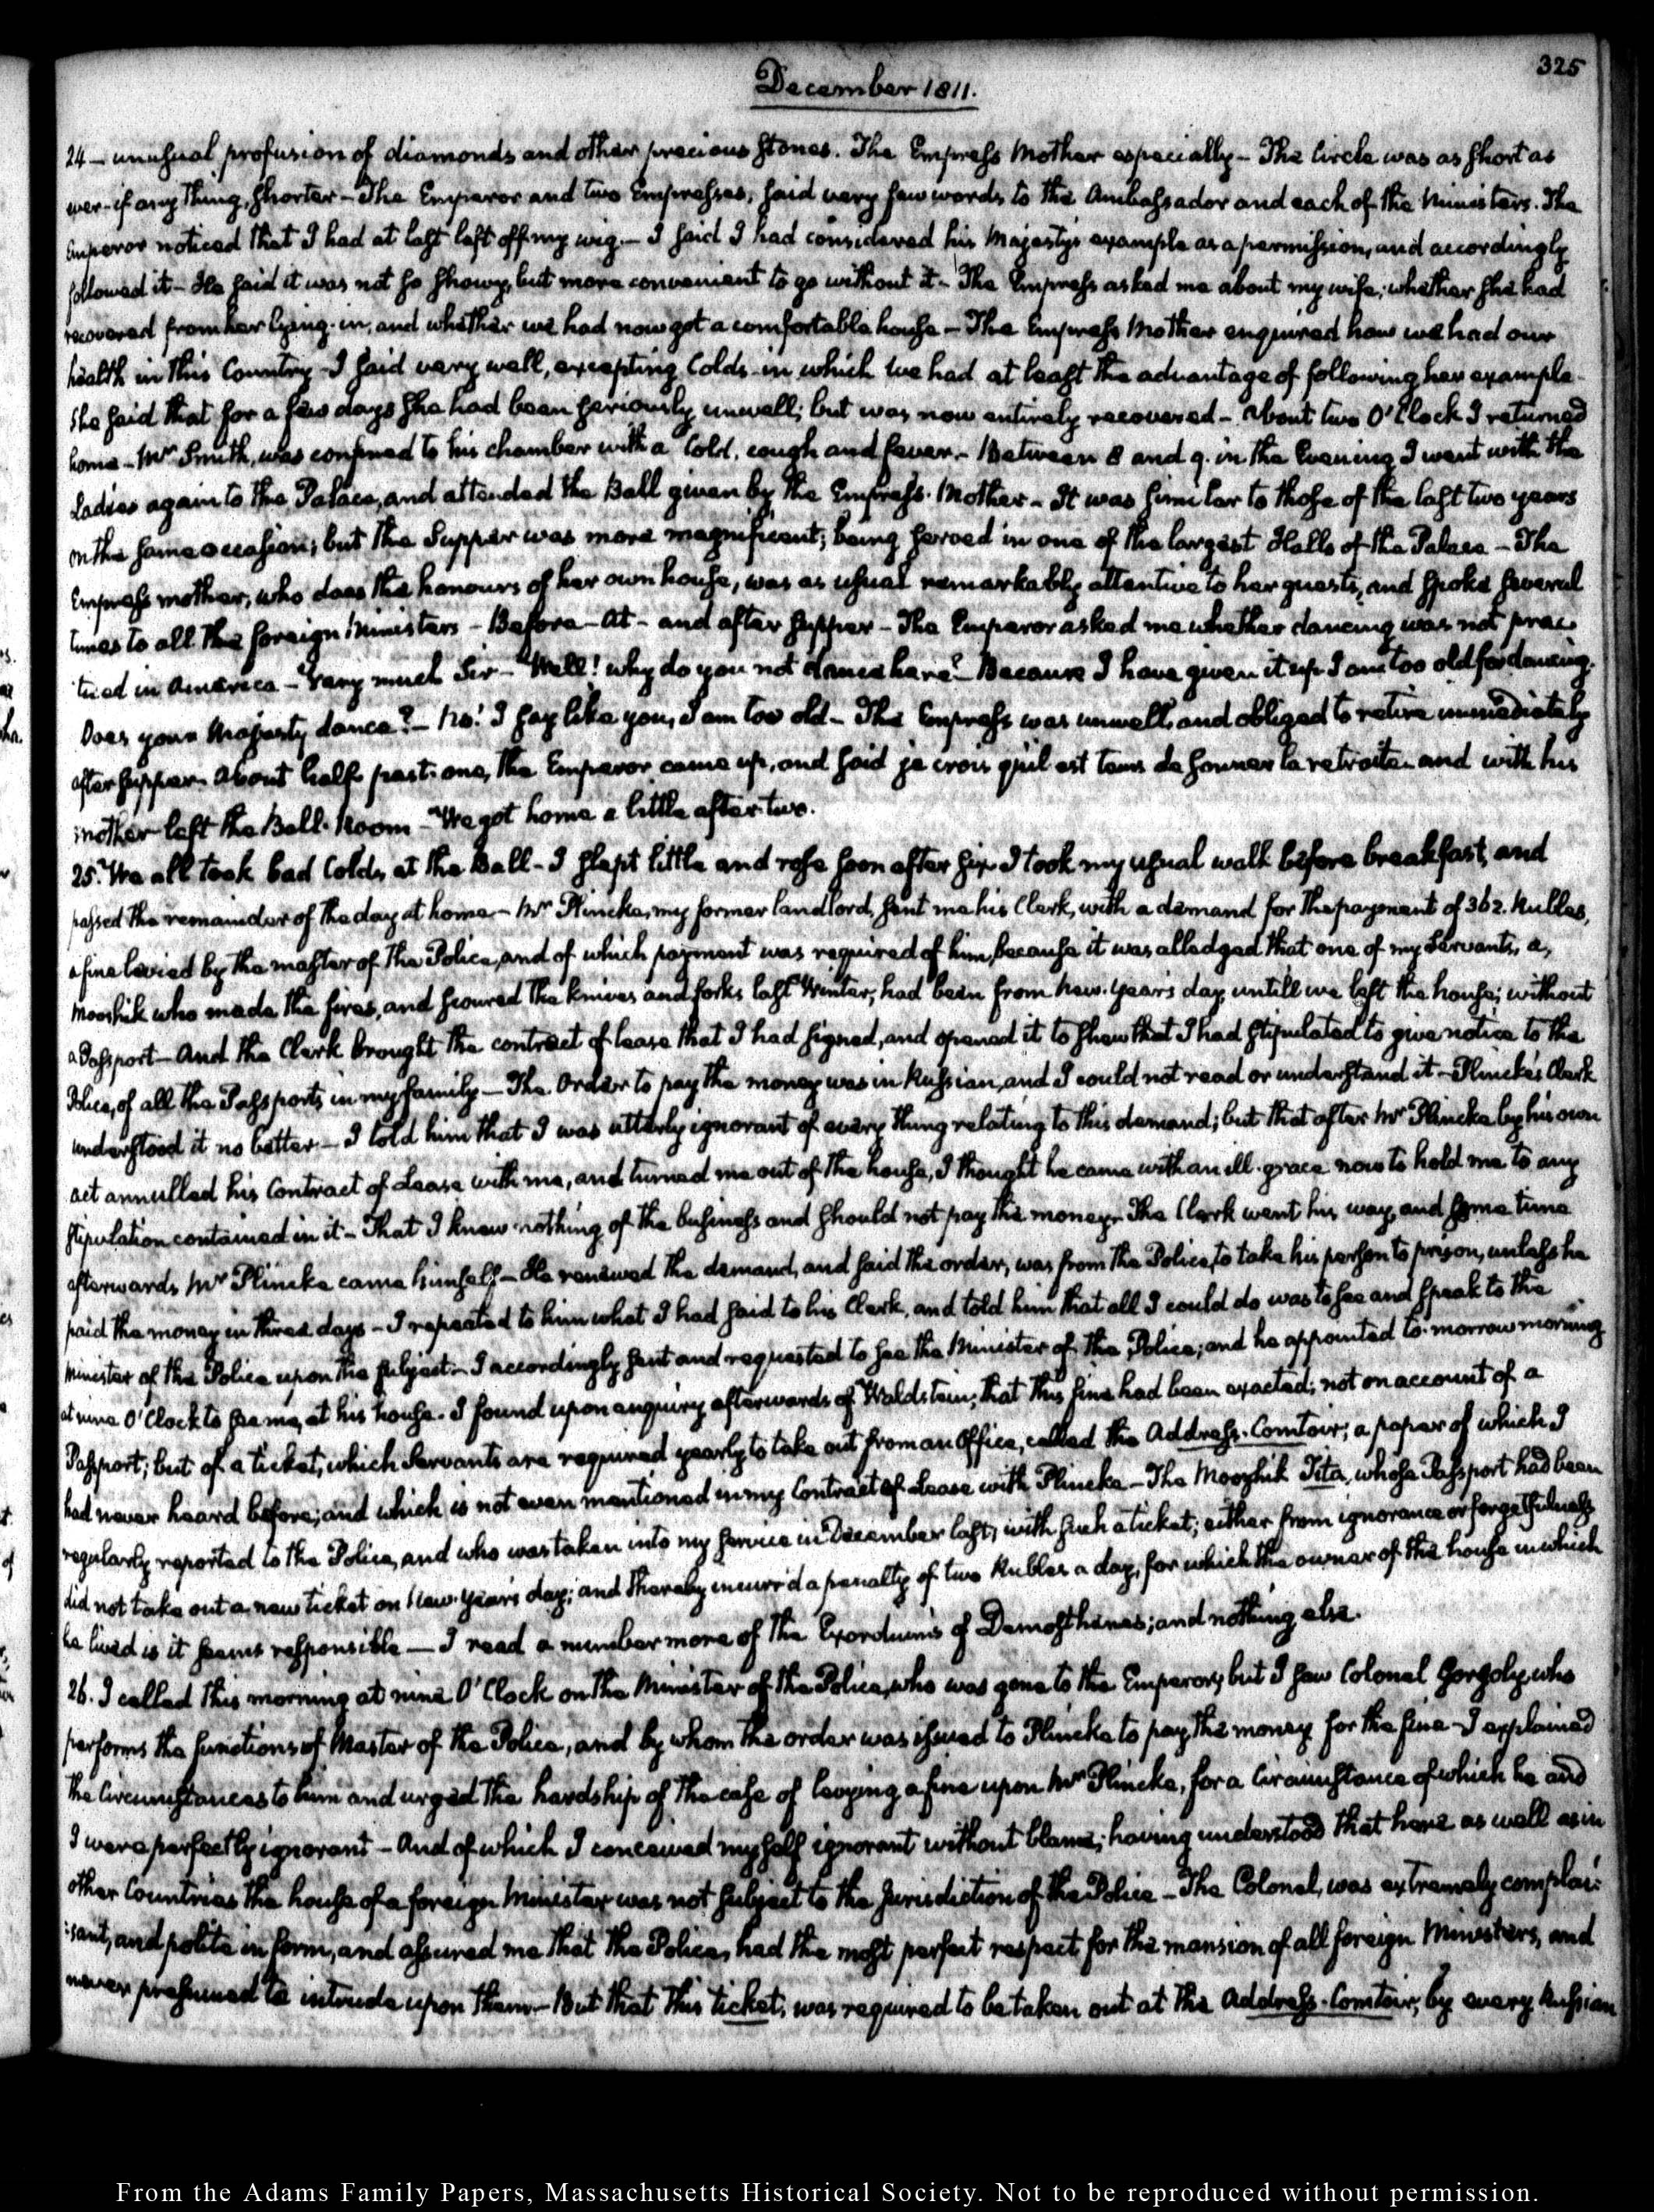 325
December 1811.
24 — unusual profusion of diamonds and other precious stones. The Empress Mother especially — The Circle was as short as
ever — if any thing, shorter — The Emperor and two Empresses, said very few words to the Ambassador and each of the Ministers. The
Emperor noticed that I had at last left off my wig. — I said I had considered his Majesty's example as a permission, and accordingly
followed it — He said it was not so showy, but more convenient to go without it — The Empress asked me about my wife; whether she had
recovered from her lying-in, and whether we had now got a comfortable house — The Empress Mother enquired how we had our
health in this Country — I said very well, excepting Colds — in which we had at least the advantage of following her example —
She said that for a few days she had been seriously unwell; but was now entirely recovered — About two O'Clock I returned
home — Mr Smith, was confined to his chamber with a Cold, cough and fever. — Between 8 and 9. in the Evening I went with the
Ladies again to the Palace, and attended the Ball given by the Empress-Mother — It was similar to those of the last two years
on the same occasion; but the Supper was more magnificent; being served in one of the largest Halls of the Palace — The
Empress mother, who does the honours of her own house, was as usual remarkably attentive to her guests, and spoke several
times to all the foreign Ministers — Before — At — and after supper — The Emperor asked me whether dancing was not prac-
ticed in America — Very much Sir — Well! why do you not dance here? — Because I have given it up I am too old for dancing.
Does your Majesty dance? — No! I say like you, I am too old — The Empress was unwell, and obliged to retire immediately
after supper. About half past one, the Emperor came up, and said je crois qu'il est tems de sonner la retraite — and with his
mother left the Ball-Room — We got home a little after two.
25. We all took bad Colds, at the Ball — I slept little and rose soon after six. I took my usual walk before breakfast, and
passed the remainder of the day at home — Mr Plincke, my former landlord, sent me his Clerk, with a demand for the payment of 362. Rubles,
a fine levied by the master of the Police, and of which payment was required of him, because it was alledged that one of my Servants, a,
Mooshik who made the fires, and scoured the knives and forks last Winter; had been from New-Year's day, untill we left the house; without
a Passport — And the Clerk brought the contract of lease that I had signed, and opened it to shew that I had stipulated to give notice to the
Police, of all the Passports in my family — The Order to pay the money was in Russian, and I could not read or understand it — Plincke's Clerk
understood it no better — I told him that I was utterly ignorant of every thing relating to this demand; but that after Mr Plincke by his own
act annulled his Contract of Lease with me, and turned me out of the house, I thought he came with an ill-grace now to hold me to any
stipulation contained in it — That I knew nothing of the business and should not pay the money — The Clerk went his way, and some time
afterwards Mr Plincke came himself — He renewed the demand, and said the order, was from the Police, to take his person to prison, unless he
paid the money in three days — I repeated to him what I had said to his Clerk, and told him that all I could do was to see and speak to the
Minister of the Police upon the subject — I accordingly sent and requested to see the Minister of the Police; and he appointed to-morrow morning
at nine O'Clock to see me, at his house. I found upon enquiry afterwards of Waldstein; that this fine had been exacted; not on account of a
Passport; but of a ticket, which Servants are required yearly to take out from an Office, called the Address-Comtoir; a paper of which I
had never heard before; and which is not even mentioned in my Contract of Lease with Plincke — The Moozhik Tita, whose Passport had been
regularly reported to the Police, and who was taken into my service in December last, with such a ticket; either from ignorance or forgetfulness
did not take out a new ticket on New-Year's day; and thereby incurr'd a penalty of two Rubles a day, for which the owner of the house in which
he lived is it seems responsible — I read a number more of the Exordiums of Demosthenes; and nothing else.
26. I called this morning at nine O'Clock on the Minister of the Police, who was gone to the Emperor; but I saw Colonel Gorgoly, who
performs the functions of Master of the Police, and by whom the order was issued to Plincke to pay the money for the fine — I explained
the Circumstances to him and urged the hardship of the case of levying a fine upon Mr Plincke, for a Circumstance of which he and
I were perfectly ignorant — And of which I conceived myself ignorant without blame; having understood that here as well as in
other Countries the house of a foreign Minister was not subject to the Jurisdiction of the Police — The Colonel, was extremely complai-
sant, and polite in form, and assured me that the Police, had the most perfect respect for the mansion of all foreign Ministers, and
never presumed to intrude upon them — But that this ticket, was required to be taken out at the Address-Comtoir, by every Russian
From the Adams Family Papers, Massachusetts Historical Society. Not to be reproduced without permission.